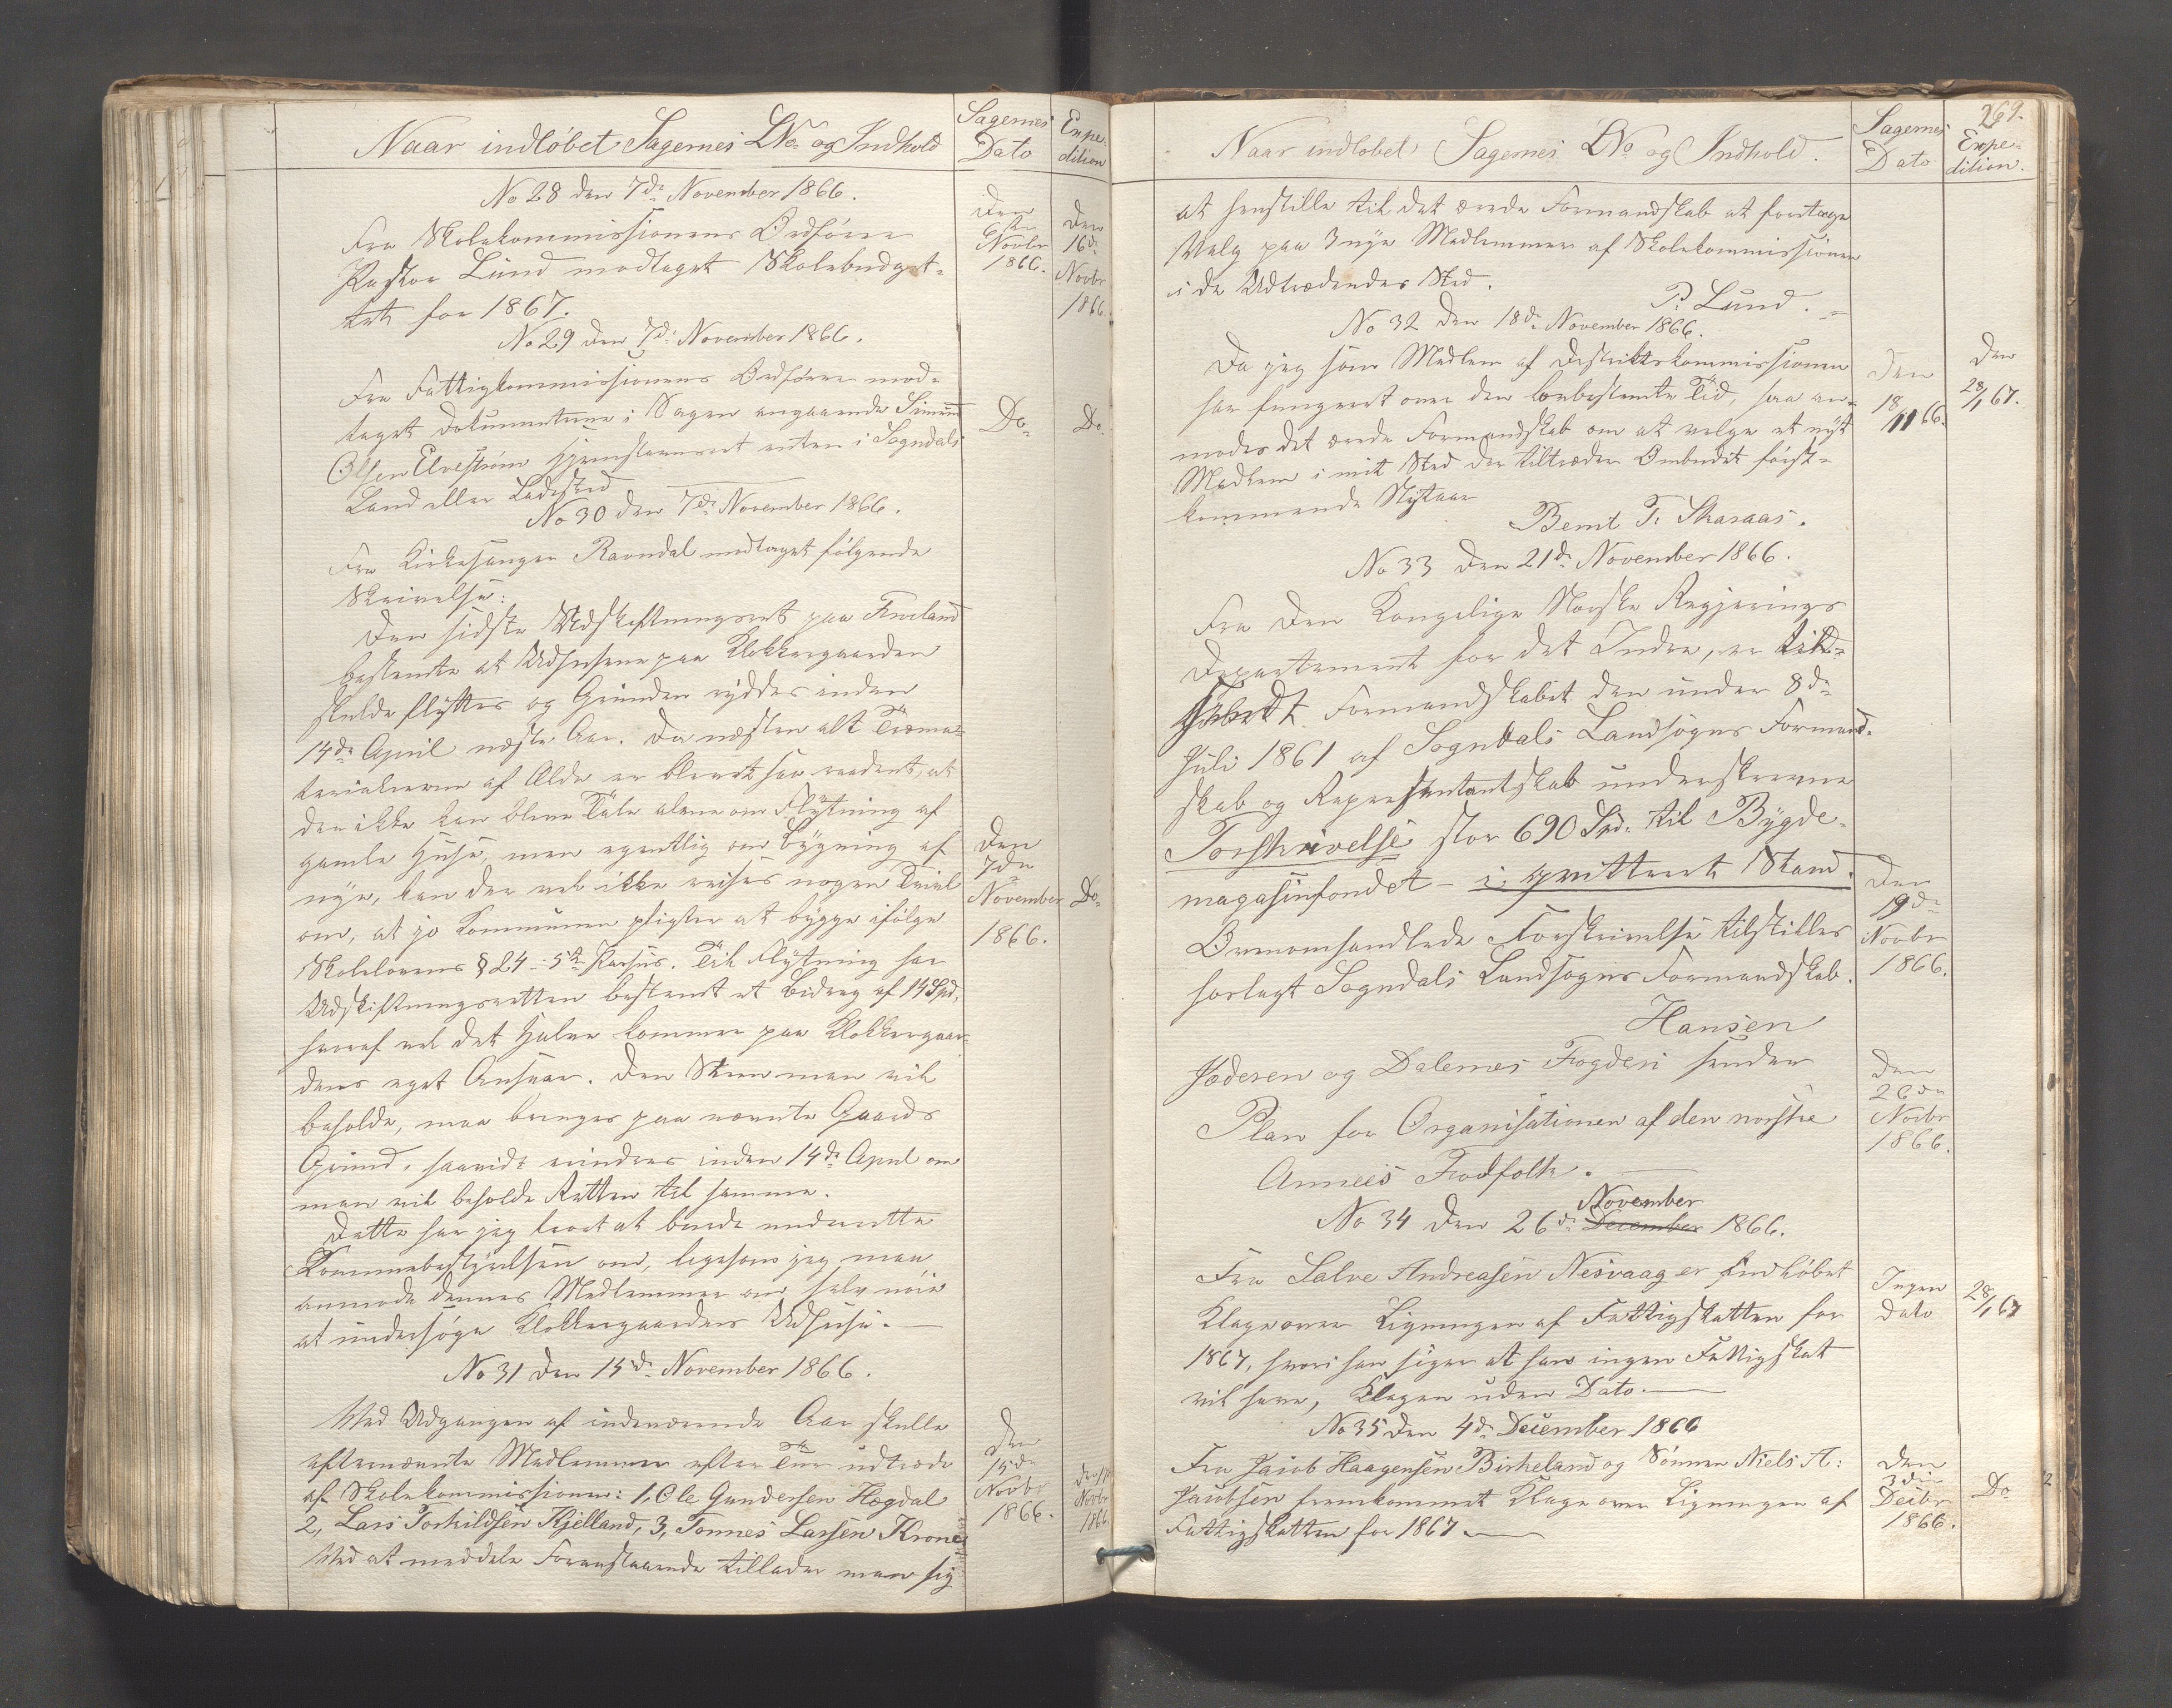 Naar indløbet Sagernes LNo og Indhold
Sagernes Dato
Expedition
No 28 den 7de November 1866.
Fra Skolekommissionens Ordfører
Pastor Lund modtaget Skolebudget-
tet for 1867.
Den 6te Novbr 1866.
Den 16de Novbr 1866.
No 29 den 7de November 1866.
Fra Fattigkommissionens Ordfører mod-
taget Dokumenterne i Sagen angaaende Simon
Olsen Elvestrøm hjemstavnsret enten i Sogndals
Land eller Ladested
Do
Do
No 30 den 7de November 1866.
Fra Kirkesanger Ravndal modtaget følgende
Skrivelse:
Den sidste Udskiftningsret paa
bestemte at Udhusene paa Klokkergaarden
skulde flyttes og Grunden ryddes inden
14de April næste Aar. Da næsten alt Træma-
terialerne af Ælde er blevet saa raadent, at
der ikke kan blive Tale alene om Flytning af
gamle Huse, men egentlig om Bygning af
nye, kan der vel ikke reises nogen Tvivl
om, at jo Kommunen pligter at bygge ifølge
Skolelovens § 24 - 5te Passus. Til Flytning har
Udskiftningsretten bestemt et Bidrag af 14 Spd,
hvoraf vel det Halve kommer paa Klokkergaar-
dens eget Ansvar. Den Steen man vil
beholde, maa bringes paa nævnte Gaards
Grund, saavidt erindres inden 14de April om
man vil beholde Retten til samme.
Dette har jeg troet at burde underrette
Kommunebestyrelsen om, ligesom jeg maa
anmode dennes Medlemmer om selv nøie
at undersøge Klokkergaardens Udhuse. —
Den 7de November 1866.
Do
No 31 den 15de November 1866.
Ved Udgangen af indeværende Aar skulle
efternævnte Medlemmer efter Tur udtræde
af Skolekommissionen: 1, Ole Gundersen Hægdal
2, Lars Torkildsen Kjelland, 3, Tønnes Larsen Krone
Ved at meddele Foranstaaende tillader man sig
Den 15de Novbr 1866.
Novbr 1866
269.
Naar indløbet Sagernes LNo og Indhold.
Sagernes Dato
Expedition.
at henstille til det ærede Formandskab at foretage
Valg paa 3 nye Medlemmer af Skolekommissionen
i de Udtrædendes Sted.
P. Lund.
No 32 den 18de November 1866.
Da jeg som Medlem af Distriktskommissionen
har fungeret over den lovbestemte Tid, saa an-
modes det ærede Formandskab om at vælge et nyt
Medlem i mit Sted der tiltræder Ombudet først-
kommende Nytaar
Bernt T. Skaraas.
Den 18/11 66.
Den 28/1 67.
No 33 den 21de November 1866.
Fra den Kongelige Norske Regjerings
Departement for det Indre, er tilb-
Formandskabet den under 8de
Juli 1861 af Sogndals Landsogns Formand-
skab og Repræsentantskab underskrevne
Forskrivelse stor 690 Spd. til Bygde-
magasinfondet — i qvitteret Stand.
Ovenomhandlede Forskrivelse tilstilles
herlagt Sogndals Landsogns Formandskab.
Hansen
Den 19de Novbr 1866.
Jæderen og Dalernes Fogderi sender
Plan for Organisationen af den norske
Armees Fodfolk. —
Den 26de Novbr 1866.
No 34 den 26de December November 1866.
Fra Salve Andreasen Nesvaag er indløbet
Klage over Ligningen af Fattigskatten for
1867, hvori han siger at han ingen Fattigskat
vil have, Klagen uden Dato. —
Ingen Dato
28/1 67
No 35 den 4de December 1866
Fra Jacob Haagensen Birkeland og Sønnen Niels A:
Jacobsen fremkommet Klage over Ligningen af
Fattigskatten for 1867. —
Den 3die Decbr 1866.
Do